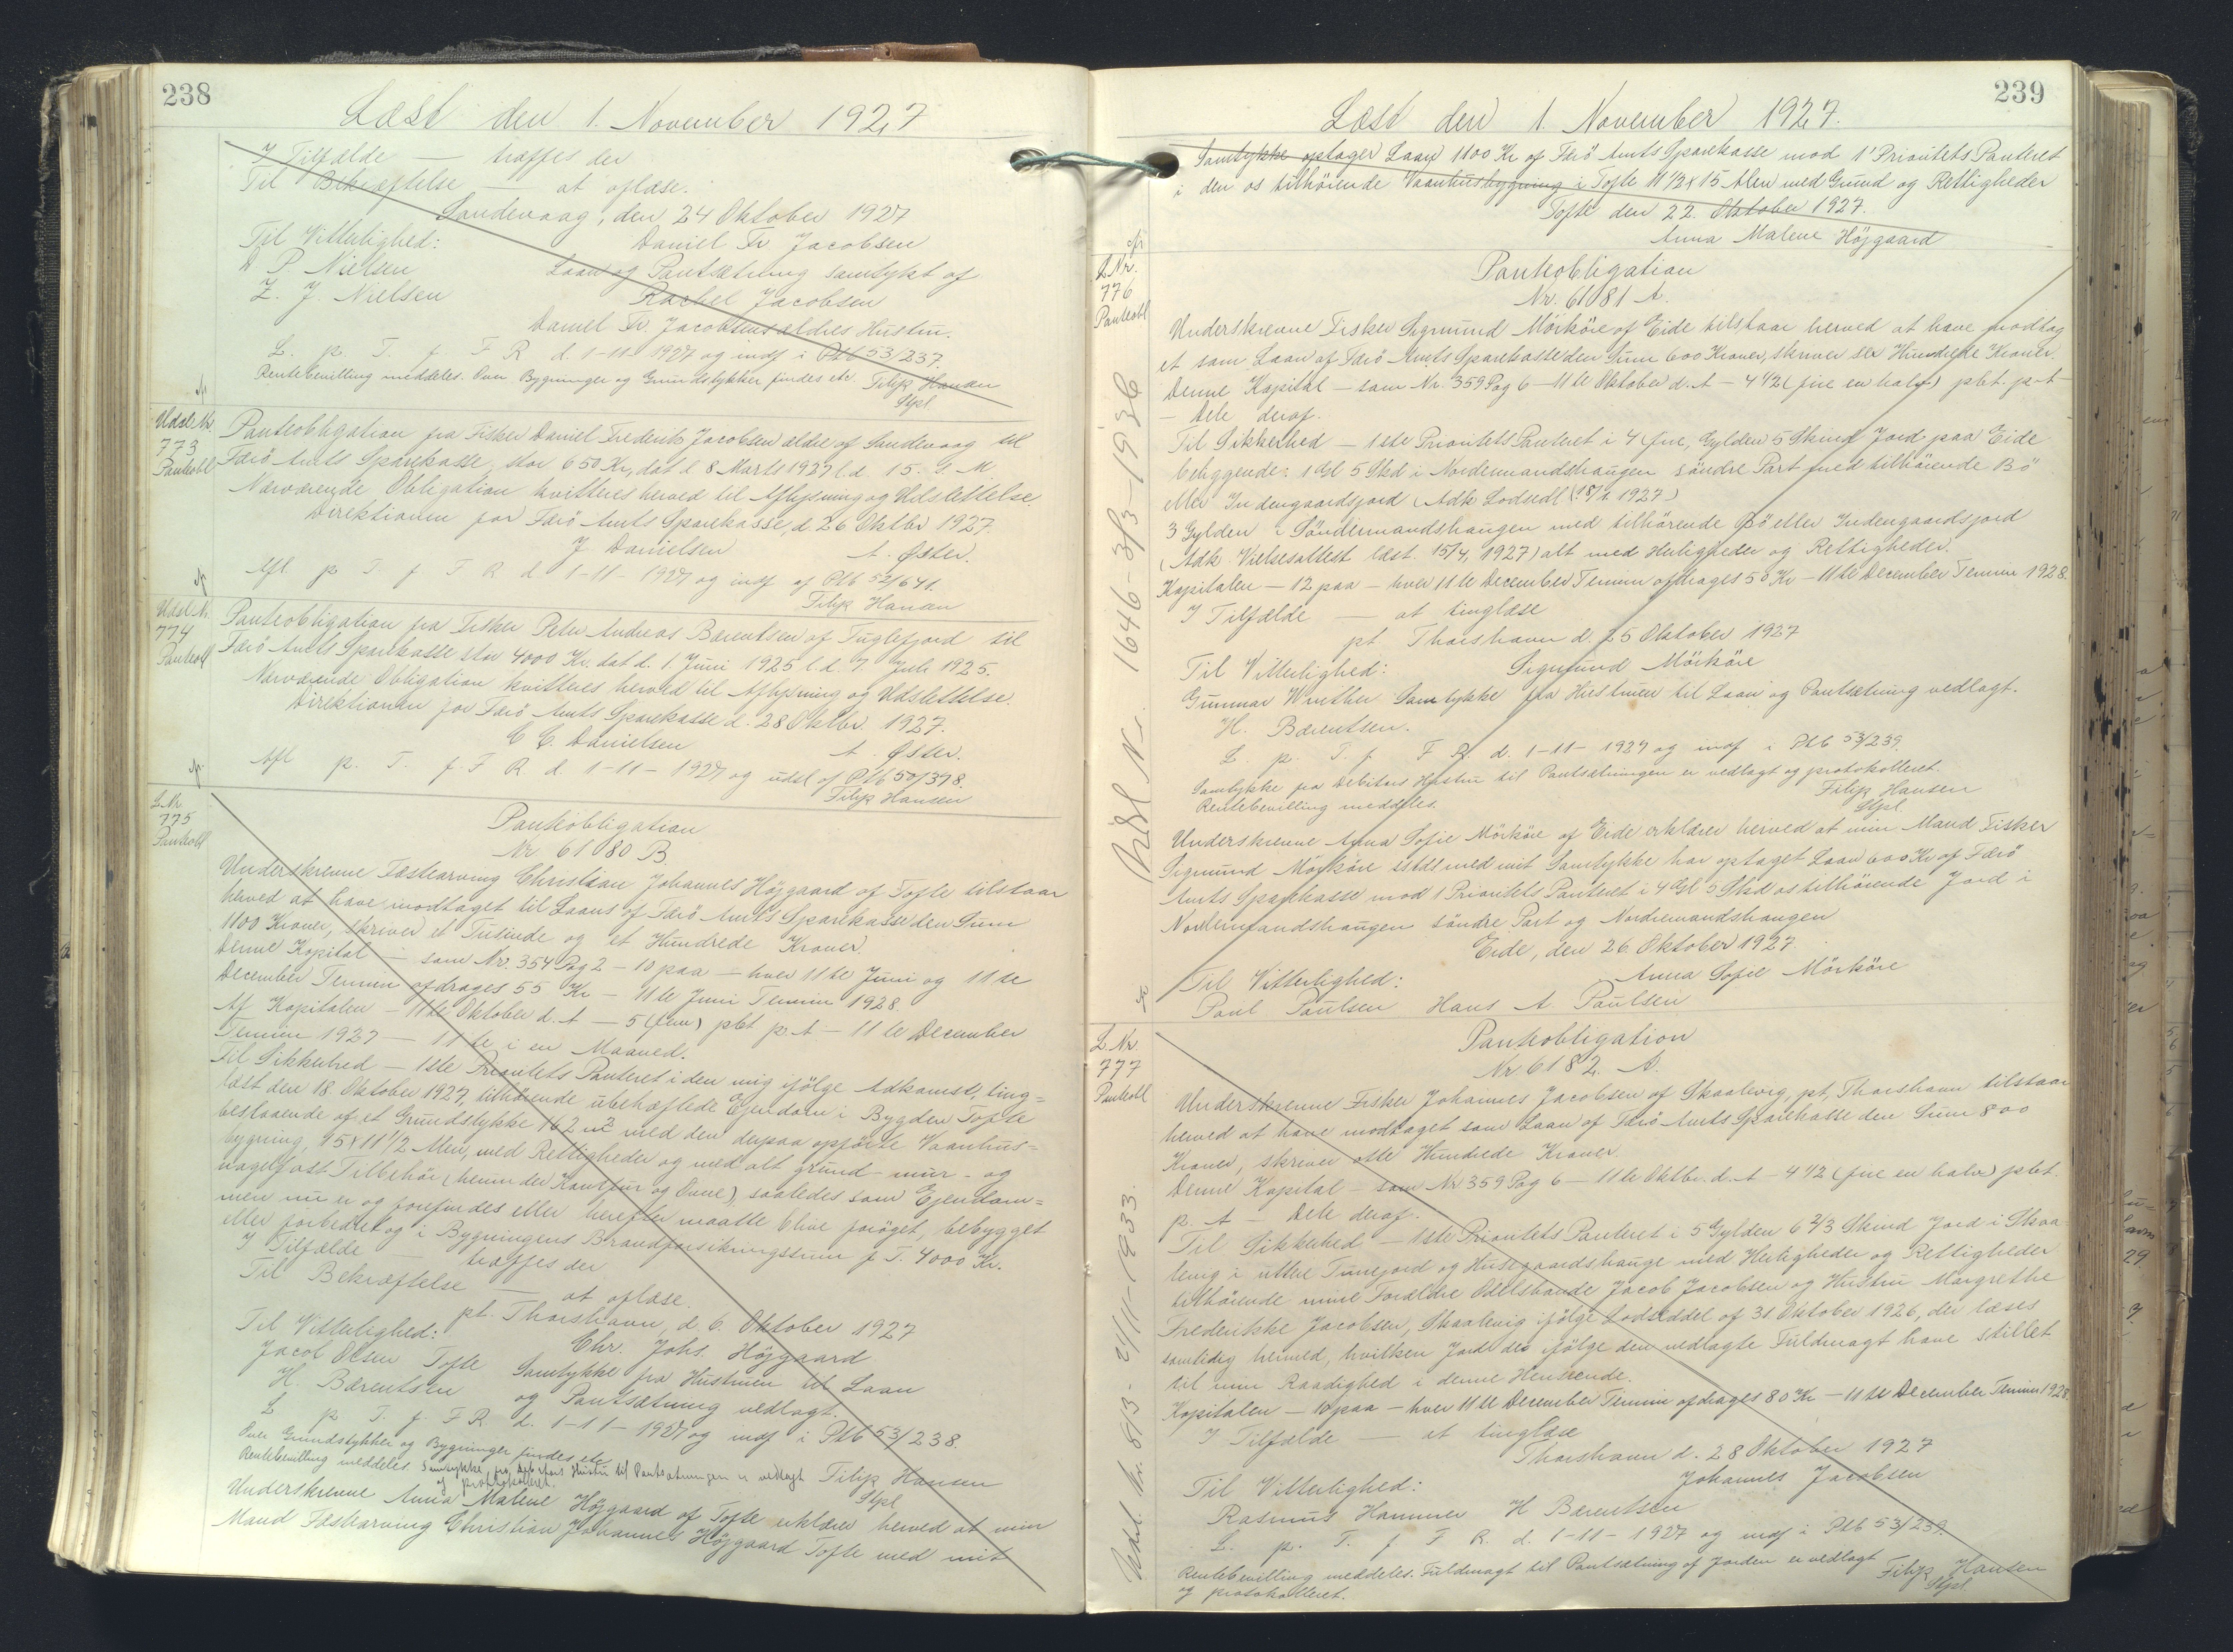 238
Læst den 1. November 1927
I Tilfælde — træffes der
Til Bekræftelse — at oplæse.
Sandevaag, den 24 Oktober 1927
Til Vitterlighed:
Daniel Fr Jacobsen
D. P. Nielsen
Laan og Pantsætning samtykt af
Z. J. Nielsen
Rachel Jacobsen
Daniel Fr. Jacobsens ældres Hustru.
L. p. T. f. F R d. 1-11 1927 og indf i Ptb 53/237.
Rentebevilling meddeles. Over Bygninger og Grundstykker findes etc Filip Hansen
Stpl
Udsl Nr.
773
Pantobl
Panteobligation fra Fisker Daniel Frederik Jacobsen ældre af Sandevaag til
Færö Amts Sparekasse, stor 650 Kr, dat d 8 Marts 1927 l.d. 15. s. M.
Nærværende Obligation kvitteres herved til Aflysning og Udslettelse.
Direktionen for Færö Amts Sparekasse, d 26 Oktbr 1927.
J Danielsen A. Øster.
Afl. p T. f F R d 1-11-1927 og indf af Ptb 52/641.
Filip Hansen
Udsl Nr.
774
Pantobl
Panteobligation fra Fisker Peter Andreas Bærentsen af Fuglefjord til
Færö Amts Sparekasse stor 4000 Kr. dat d. 1. Juni 1925 l.d. 7 Juli 1925.
Nærværende Obligation kvitteres herved til Aflysning og Udslettelse.
Direktionen for Færö Amts Sparekasse d. 28 Oktbr. 1927.
C C. Danielsen A. Øster.
Afl p. T. f F R. d. 1-11-1927 og udsl af Ptb 50/398.
Filip Hansen
L. Nr
775
Pantobl
Panteobligation
Nr 61080 B.
Underskrevne Fæstearving Christian Johannes Höjgaard af Tofte tilstaar
herved at have modtaget til Laans af Færö Amts Sparekasse den Sum
1100 Kroner, skriver et Tusinde og et Hundrede Kroner.
Denne Kapital — som Nr. 354 Pag 2 — 10 paa — hver 11te Juni og 11te
December Termin afdrages 55 Kr — 11te Juni Termin 1928.
Af Kapitalen — 11te Oktober d. A — 5 (fem) pCt p. A — 11te December
Termin 1927 — 11te i en Maaned.
Til Sikkerhed — 1ste Prioritets Panteret i den mig ifölge Adkomst, ting=
læst den 18. Oktober 1927, tilhörende ubehæftede Ejendom i Bygden Tofte
bestaaende af et Grundstykke 162 m² med den derpaa opförte Vaanhus=
bygning, 15 x 11 1/2 Alen, med Rettigheder og med alt grund- mur- og
nagelfast Tilbehör (herunder Komfur og Ovne), saaledes som Ejendom=
men nu er og forefindes eller herefter maatte blive foröget, bebygget
eller forbedret og i Bygningens Brandforsikringssum f. T. 4000 Kr.
I Tilfælde — træffes der
Til Bekræftelse — at oplæse.
pt. Thorshavn, d 6. Oktober 1927
Til Vitterlighed:
Chr. Johs. Höjgaard
Jacob Olsen Tofte Samtykke fra Hustruen til Laan
H. Bærentsen og Pantsætning vedlagt.
L p T. f. F R. d. 1-11-1927 og indf i Ptb 53/238.
Over Grundstykker og Bygninger findes etc.
Rentebevilling meddeles. Samtykke fra Debitors Hustru til Pantsætningen er vedlagt Filip Hansen
og protokolleret. Stpl
Underskrevne Anna Malene Höjgaard af Tofte erklærer herved at min
Mand Fæstearving Christian Johannes Höjgaard Tofte med mit
239
Læst den 1. November 1927.
Samtykke optager Laan 1100 Kr af Færö Amts Sparekasse mod 1' Prioritets Panteret
i den os tilhörende Vaanhusbygning i Tofte 11 1/2 x 15 Alen med Grund og Rettigheder
Tofte den 22. Oktober 1927.
Anna Malene Höjgaard
L. Nr.
776
Pantobl
Panteobligation
Nr. 61081 A.
Underskrevne Fisker Sigmund Mörköre af Eide tilstaar herved at have modtag
et som Laan af Færö Amts Sparekasse den Sum 600 Kroner, skriver sex Hundrede Kroner.
Denne Kapital — som Nr. 359 Pag 6 — 11te Oktober d. A — 4 1/2 (fire en halv) pCt. p. A —
— Dele deraf.
Til Sikkerhed — 1ste Prioritets Panteret i 4 fire, Gylden 5 Skind Jord paa Eide
beliggende: 1 Gl 5 Skd i Nordenmandshaugen söndre Part med tilhörende Bö
eller Indengaardsjord (Adk Lodsedl (18/1 1927)
3 Gylden i Söndermandshaugen med tilhörende Bö eller Indengaardsjord
(Adk Vielsesattest læst 15/4, 1927) alt med Herligheder og Rettigheder.
Kapitalen — 12 paa — hver 11te December Termin afdrages 50 Kr — 11te December Termin 1928.
I Tilfælde — at tinglæse
pt Thorshavn d. 25 Oktober 1927
Til Vitterlighed: Sigmund Mörköre
Gunnar Winther Samtykke fra Hustruen til Laan og Pantsætning vedlagt.
H. Bærentsen.
L. p. T. f F R. d. 1-11-1927 og indf i Ptb 53/239.
Samtykke fra Debitors Hustru til Pantsætningen er vedlagt og protokolleret.
Rentebevilling meddeles. Filip Hansen
Stpl.
Underskrevne Anna Sofie Mörköre af Eide erklærer herved at min Mand Fisker
Sigmund Mörköre sstds med mit Samtykke har optaget Laan 600 Kr af Færö
Amts Sparekasse mod 1 Prioritets Panteret i 4 Gl 5 Skd os tilhörende Jord i
Nordenmandshaugen söndre Part og Nordremandshaugen
Eide, den 26. Oktober 1927.
Til Vitterlighed: Anna Sofie Mörköre
Poul Poulsen Hans A. Poulsen
Udsl Nr. 1646-3/3-1936
L. Nr
777
Pantobl
Panteobligation
Nr 6182. A.
Underskrevne Fisker Johannes Jacobsen af Skaalevig, pt, Thorshavn tilstaar
herved at have modtaget som Laan af Færö Amts Sparekasse den Sum 800
Kroner, skriver otte Hundrede Kroner.
Denne Kapital — som Nr 359 Pag 6 — 11te Oktbr. d. A — 4 1/2 (fire en halv) pCt.
p. A — Dele deraf.
Til Sikkerhed — 1ste Prioritets Panteret i 5 Gylden 6 2/3 Skind Jord i Skaa
levig i uttere Tunejord og Husegaardshauge med Herligheder og Rettigheder
tilhörende mine Forældre Odelsbonde Jacob Jacobsen og Hustru Margrethe
Frederikke Jacobsen, Skaalevig ifölge Lodseddel af 31. Oktober 1926, der læses
samtidig herined, hvilken Jord de ifölge den vedlagte Fuldmagt have stillet
til min Raadighed i denne Henseende.
Kapitalen — 10 paa — hver 11te December Termin afdrages 80 Kr — 11te December Termin 1928.
I Tilfælde — at tinglæse
Thorshavn d. 28 Oktober 1927
Til Vitterlighed: Johannes Jacobsen
Rasmus Hammer H Bærentsen
L. p. T. f F R. d. 1-11-1927 og indf i Ptb 53/239.
Rentebevilling meddeles. Fuldmagt til Pantsætning af Jorden er vedlagt Filip Hansen
og protokolleret. Stpl
Udsl. Nr. 813- 21/11-1933.